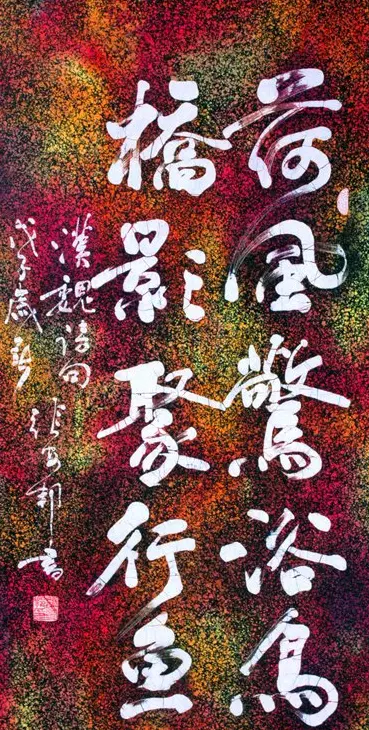 荷風驚浴鳥
橋影聚行魚
漢魏詩句
戊子歲 張安邦書